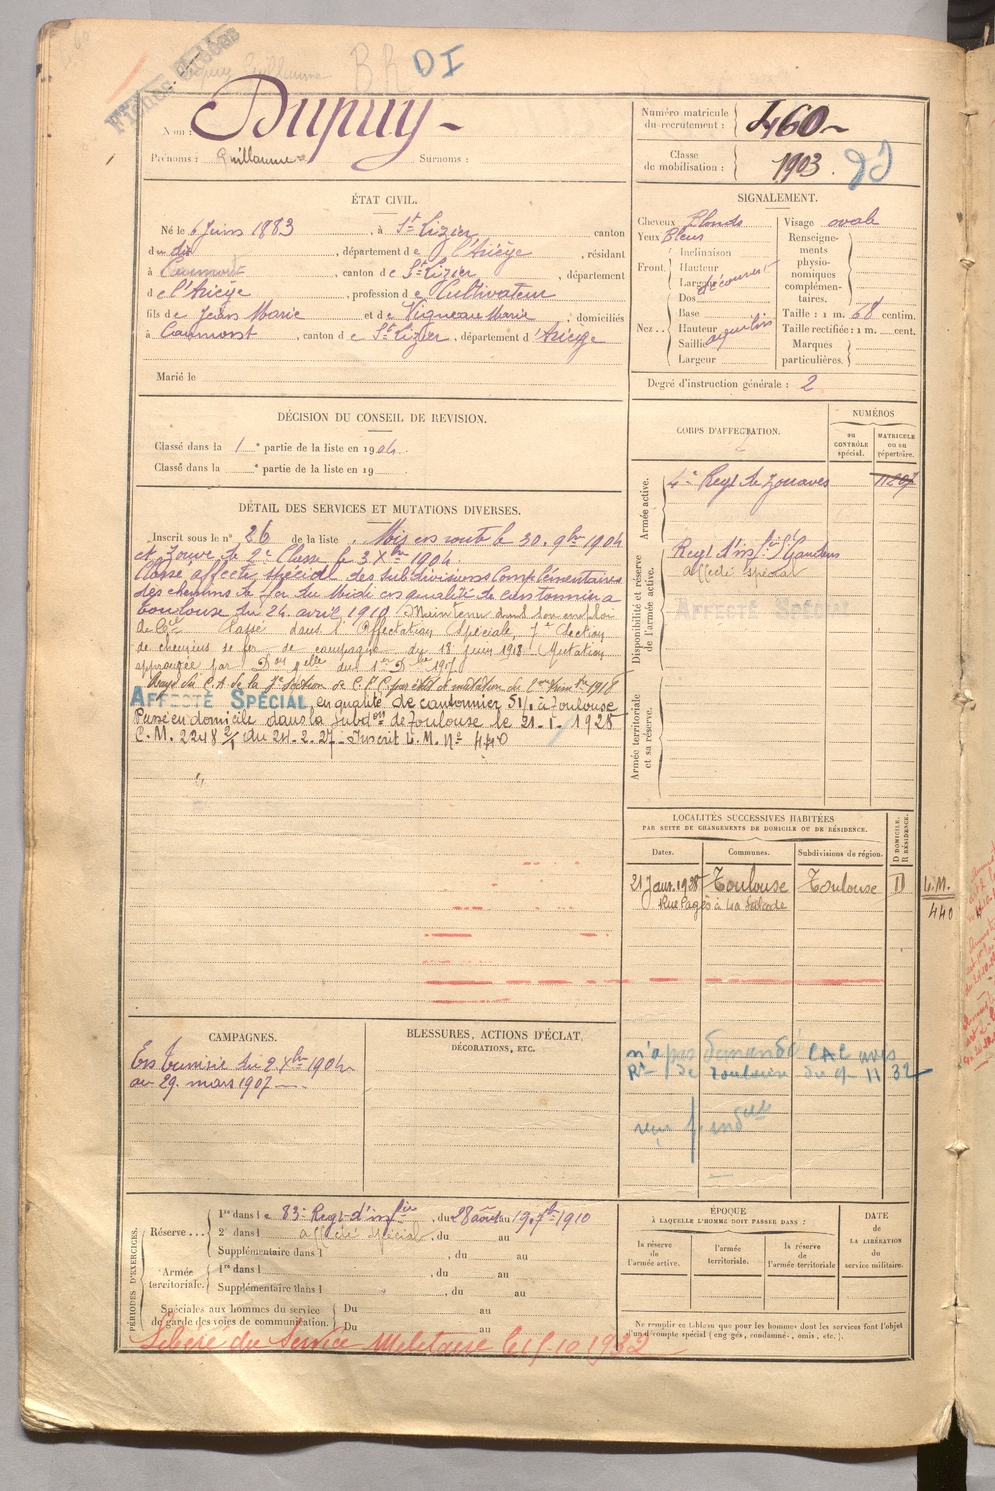 Fiches Créées
B.R DI
Nom : Dupuy
Prénoms : Guillaume Surnoms :
Numéro matricule du recrutement : 460
Classe de mobilisation : 1903.
ÉTAT CIVIL.
Né le 6 Juin 1883, à St Lizier canton
du dit, département de l'Ariège, résidant
à Caumont, canton de St Lizier, département
de l'Ariège, profession de Cultivateur
fils de Jean Marie et de Vigneau Marie, domiciliés
à Caumont, canton de St Lizier, département d'Ariège
Marié le
SIGNALEMENT.
Cheveux Blonds
Yeux Bleus
Front. Inclinaison
Hauteur
Largeur découvert
Nez. Dos
Base
Hauteur
Saillie aquilin
Largeur
Visage ovale
Renseignements physionomiques complémentaires.
Taille : 1 m. 68 centim.
Taille rectifiée : 1 m. cent.
Marques particulières.
Degré d'instruction générale : 2
DÉCISION DU CONSEIL DE REVISION.
Classé dans la 1e partie de la liste en 1904.
Classé dans la e partie de la liste en 19
CORPS D'AFFECTATION.
NUMÉROS
DU CONTRÔLE spécial.
MATRICULE ou au répertoire.
Armée active.
4e Regt de Zouaves 11207
Disponibilité et réserve de l'armée active.
Regt d'infie St Gaudens
affecté spécial
AFFECTÉ SPÉCIAL
Armée territoriale et sa réserve.
DÉTAIL DES SERVICES ET MUTATIONS DIVERSES.
Inscrit sous le n° 26 de la liste. Mis en route le 30. 9bre 1904
et Zouave de 2e Classe le 3 Xbre 1904.
Classé affecté spécial des subdivisions Complémentaires
des chemins de fer du Midi en qualité de cantonnier a
Toulouse du 24 avril 1910. Maintenu dans son emploi
Passé dans l'Affectation Spéciale, 7e Section
de chemins de fer de campagne du 18 juin 1918. Mutation
approuvée par
AFFECTÉ SPÉCIAL en qualité de cantonnier à Toulouse
Passe en domicile dans la subdon de Toulouse le 21-1-1928
C.M. 2248 2/1 du 24-2-27_Inscrit L.M. N° 440
LOCALITÉS SUCCESSIVES HABITÉES
PAR SUITE DE CHANGEMENTS DE DOMICILE OU DE RÉSIDENCE.
Dates. Communes. Subdivisions de région. D DOMICILE. R RÉSIDENCE.
21 Janv. 1928 Toulouse Toulouse D
Rue Pagès
L.M.
440
n'a pas demandé CAC avis
Rt de Toulouse du 9 11 32
CAMPAGNES.
En Tunisie du 2 Xbre 1904
au 29 mars 1907
BLESSURES, ACTIONS D'ÉCLAT,
DÉCORATIONS, ETC.
PÉRIODES D'EXERCICES.
Réserve... 1re dans le 83e Regt d'infie, du 28 août au 19. 7b 1910
2e dans l affecté spécial, du au
Supplémentaire dans l, du au
Armée territoriale. 1re dans l, du au
Supplémentaire dans l, du au
Spéciales aux hommes du service de garde des voies de communication. Du au
Du au
ÉPOQUE
À LAQUELLE L'HOMME DOIT PASSER DANS :
la réserve de l'armée active.
l'armée territoriale.
la réserve de l'armée territoriale
DATE de LA LIBÉRATION du service militaire.
Ne remplir ce tableau que pour les hommes dont les services font l'objet
d'un décompte spécial (engagés, condamnés, omis, etc.).
Libéré du Service Militaire le 15-10-1932